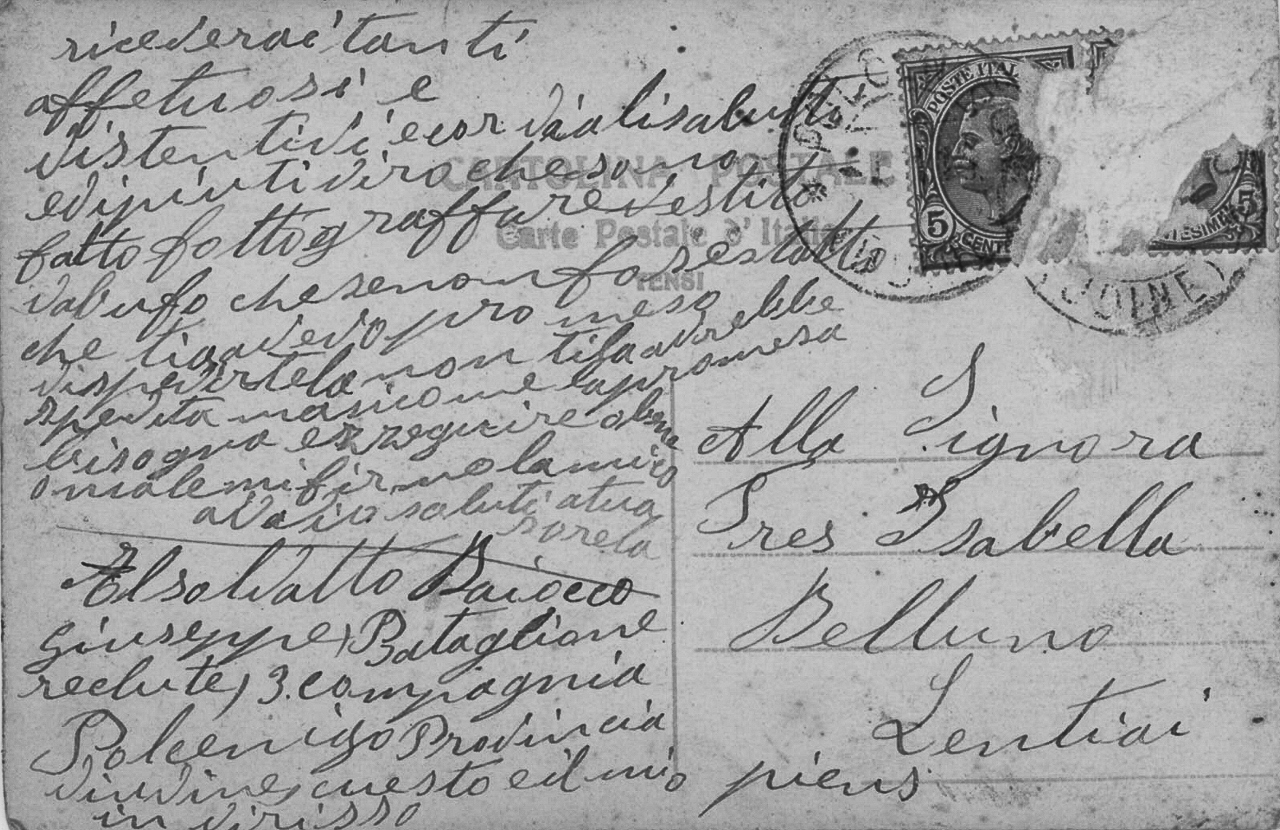 riceverai tanti
affetuosi e
distentivi e cordiali saluto
edipiuti diro che sono
fatto fottograffare vestito
che senon fose statto
che tiaavevo promeso
dispedirtela non tila avrebbe
spedita masicome lapromesa
bisogna esseguire o bene
omale mifirmo lamico
saluti atua
sorela
Al soldatto Baiocco
Giuseppe, Bataglione
reclute, 3. compagnia
Polcenigo Provincia
diudine, cuesto e il mio
indirisso
CARTOLINA POSTALE
Carte Postale d'Italie
POSTE ITAL
5 CENT
5
TESIMI
(UDINE)
Alla Signora
Tres Isabella
Belluno
Lentiai
piens